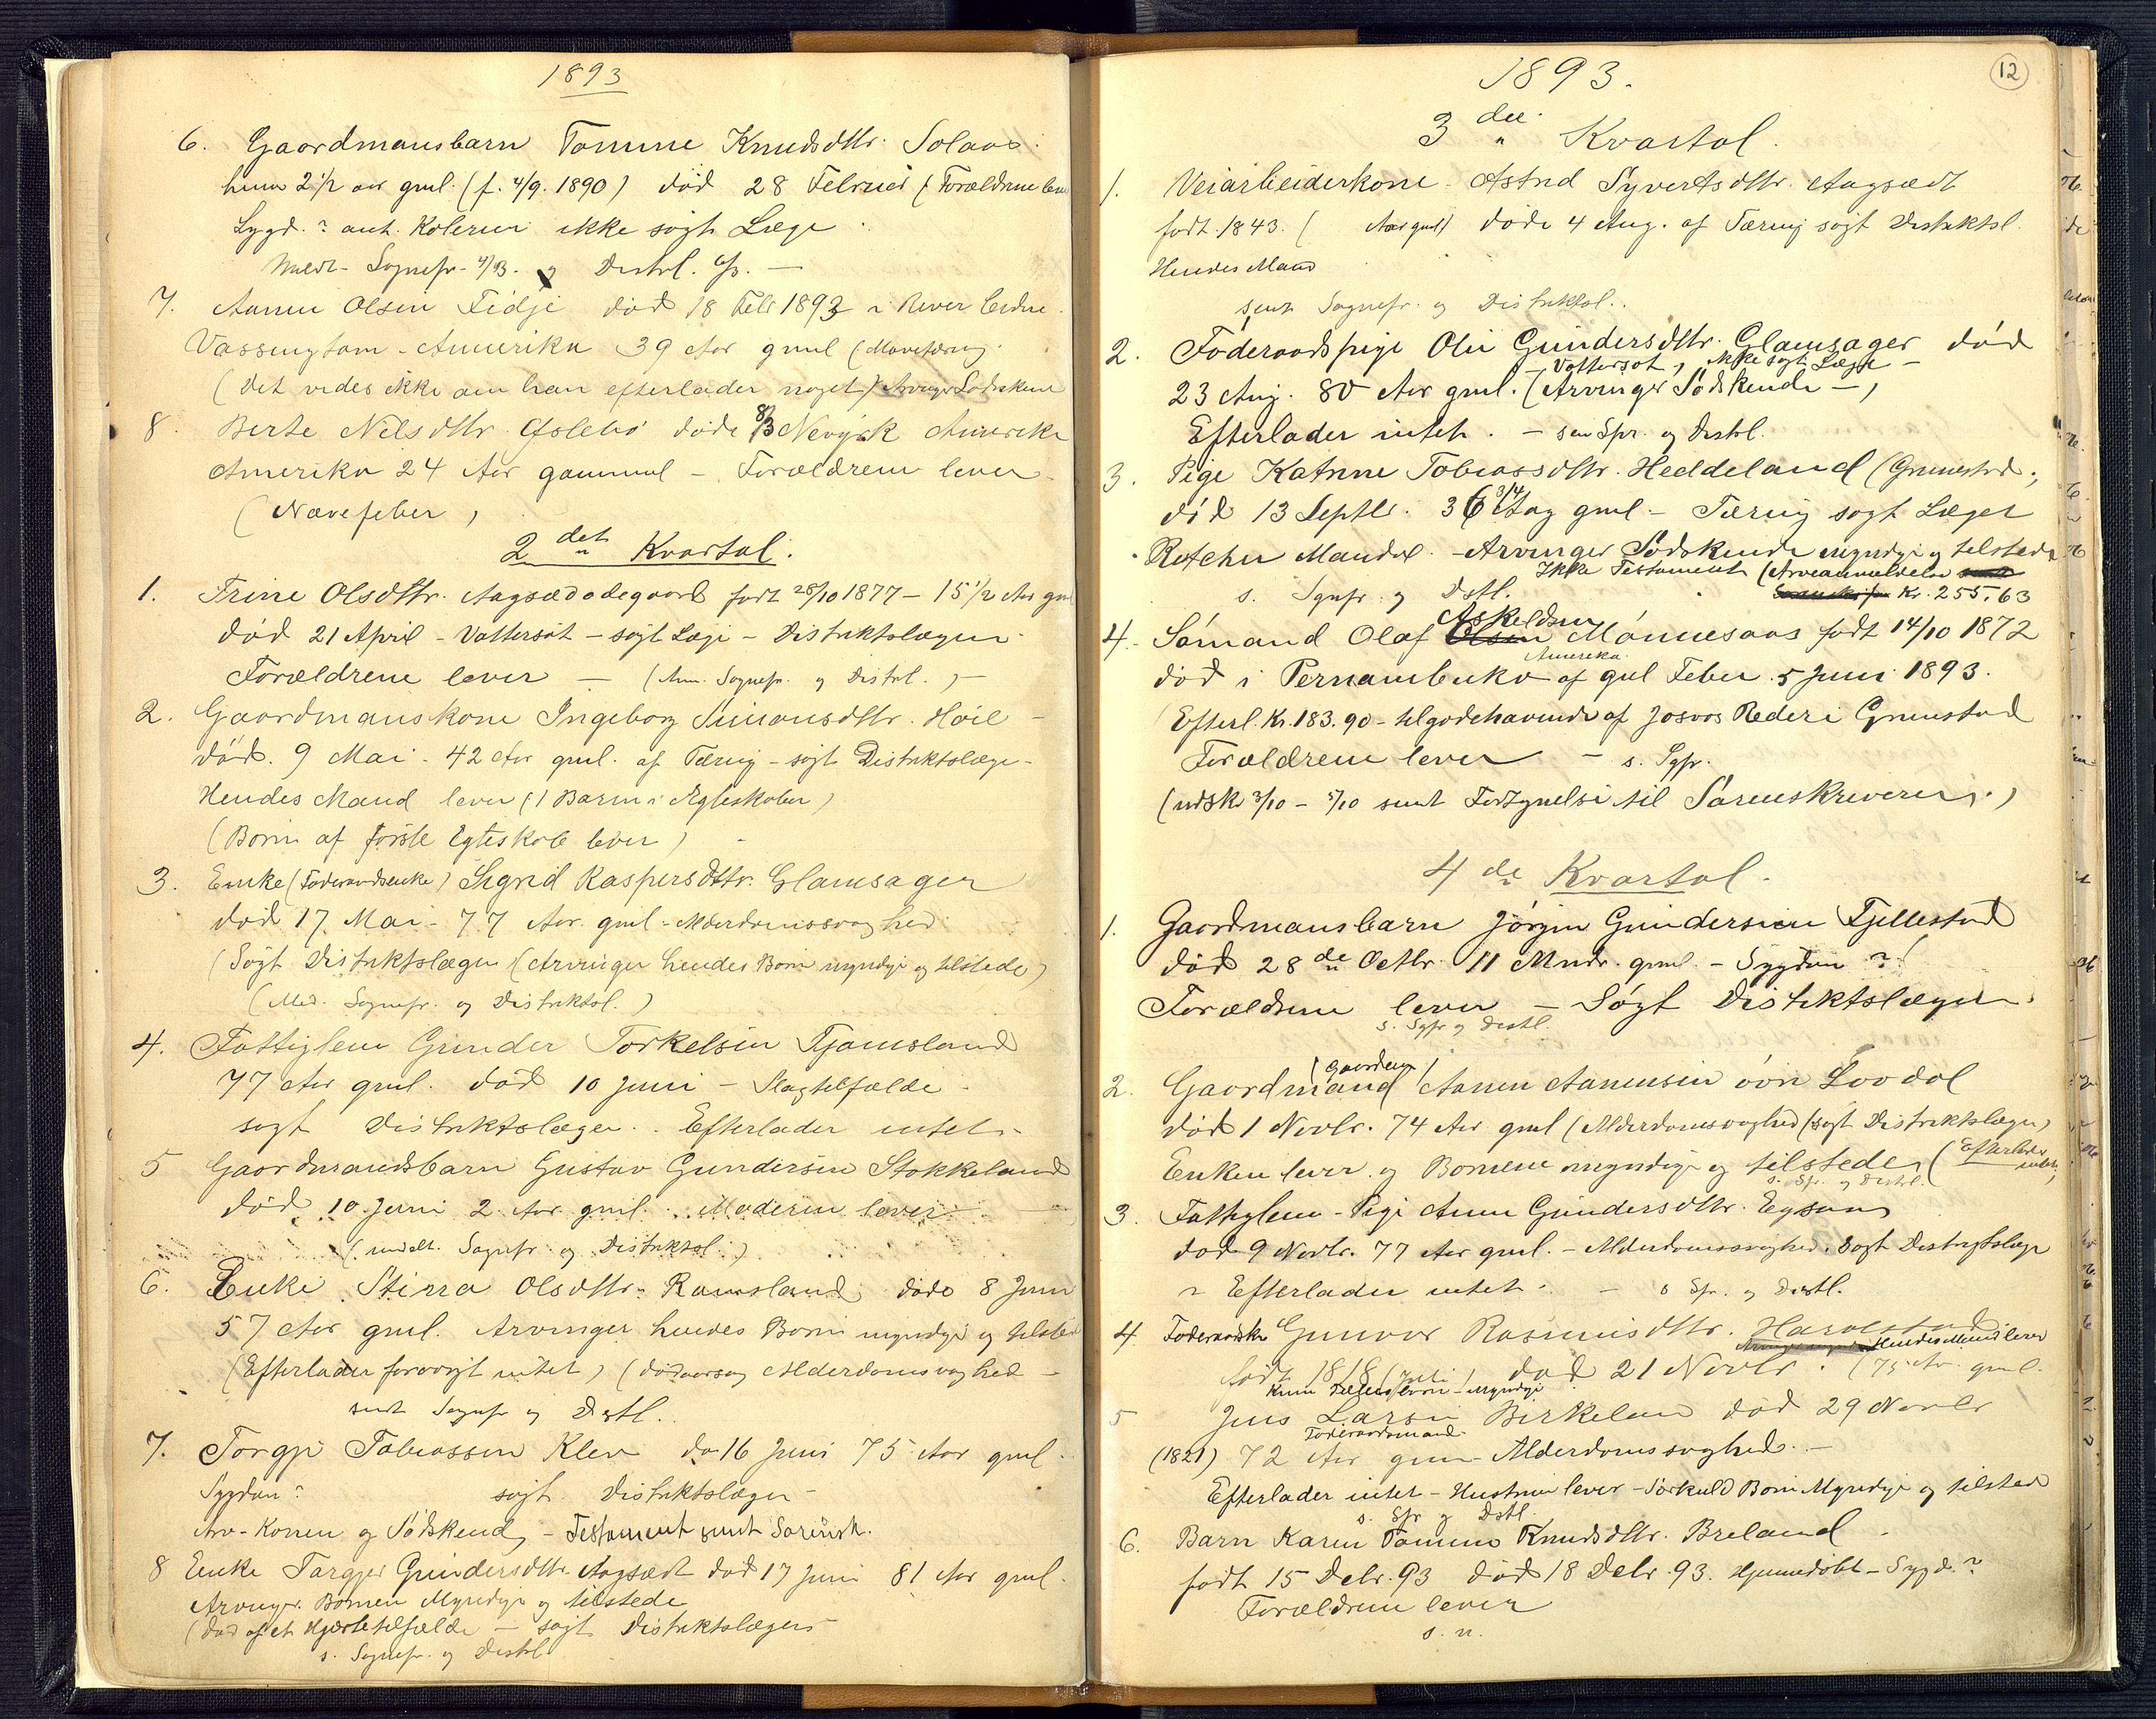 1893
6. Gaardmansbarn Tomine Knudsdttr. Solaas.
hun 2½ aar gml. (f. 4/9. 1890) død 28 Februar (Forældrene lever
Sygd.? ant. Kolerin ikke søgt Læge
Meldt Sognepr. 4/3. og Distrl. 6/3. —
7. Aanen Olsen Fidje død 18 Febr 1893 i River
Vassingtom - Amerika 39 Aar gml (Mavetæring.
(Det vides ikke om han efterlader noget) Arvinger Sødskene
8. Berte Nilsdttr. Øslebø døde 8/3 Nevyork Amerika
Amerika 24 Aar gammel - Forældrene lever
(Nævefeber)
2det Kvartal.
1. Trine Olsdttr. Aagsædødegaard født 28/10 1877 - 15½ Aar gm
død 21 April - Vattersot - søgt Læge - Distriktslægen
Forældrene lever — (Anm. Sognepr. og Distrl.) —
2. Gaardmanskone Ingeborg Simonsdttr. Høie -
død. 9 Mai - 42 Aar gml. af Tæring - søgt Distriktslæge -
Hendes Mand lever (1 Barn i Ægteskabet)
(Børn af første Egteskab lever)
3. Enke (Føderaadsenke) Sigrid Kaspersdttr. Glamsager
død 17 Mai - 77 Aar. gml - Alderdomssvaghed
(Søgt Distriktslægen (Arvinger hendes Børn myndige og tilstede)
(Med. Sognepr. og Distriktsl.)
4. Fattiglem Gunder Torkelsen Tjomsland
77 Aar gml. død 10 Juni - Slagtilfælde -
søgt Distriktslægen. Efterlader intet -
5 Gaardmandsbarn Gustav Gundersen Stokkeland
død 10 Juni 2 Aar gml. Moderen lever
(meldt. Sognepr. og Distriktsl.)
6. Enke Stinra Olsdttr. Ramsland døde 8 Juni
57 Aar gml. Arvinger hendes Børn myndige og tilsted
(Efterlader forøvrigt intet) (dødaarsag Alderdomsvaghed -
sendt Sognepr og Distl.
7. Torgje Tobiassen Klev dø 16 Juni 75 Aar gml.
Sygdom? søgt Distriktslægen -
Arv - Konen og Sødskend, - Testament sendt Sorensk.
8 Enke Targjer Gundersdttr. Aagsædt død 17 Juni 81 Aar gml.
Arvinger. Børnen Myndige og tilstede
(Død af et Hjærtetilfælde - søgt Distriktslægen -
s. Sognepr. og Distrl
12
1893.
3die Kvartal.
1. Veiarbeiderkone Astrid Syvertsdttr. Aagsædt
født 1843. ( Aar gml) døde 4 Aug. af Tæring søgt Distriktsl.
Hendes Mand
sendt Sognepr. og Distriktsl.
2. Føderaadspige Olie Gundersdttr. Glamsager død
- Vattersot, ikke søgt Læge -
23 Aug. 80 Aar gml. (Arvinger Sødskende -,
Efterlader intet. - sen Spr. og Distrl.
3. Pige Katrine Tobiassdttr. Heddeland (Grimestad.,
død 13 Septbr. 36 3/4 Aag gml - Tæring søgt Læger
Rotcher Mandal. - Arvinger Sødskende myndige og tilstede
Ikke Testament (Arveanmeldelse
s. Sgnpr. og Distl. Kr. 255.63
Askeldsen
4. Sømand Olaf Olsen Mønnesaas født 14/10 1872
Amerika
død i Pernambuko af gul Feber 5 Juni 1893.
(Efterl. Kr. 183.90 - tilgodehavende af Josvos Rederi Grimstad
Forældrene lever - s. Sgpr.
(udsk 3/10 - 5/10 sendt Fortegnelse til Sorenskriveren.)
4de Kvartal.
1. Gaardmansbarn Jørgen Gundersen Fjellestad
død 28de Octbr. 11 Mndr. gml. - Sygdom?
Forældrene lever - Søgt Distriktslægen
s. Sgpr og Distl.
(Gaardeier)
2. Gaardmand Aanen Aanensen øvr. Lordal
død 1 Novbr. 74 Aar gml (Alderdomsvaghed (søgt Distriktslægen)
Enken lever og Børnene myndige og tilstede, (Efterlader intet,
s. Spr. og Distrl.
3. Fattiglem - Pige Anne Gundersdttr. Egsaas
død 9 Novbr. 77 Aar gml. - Alderdomssvaghed. Søgt Distriktslæge
Efterlader intet - - s Spr. og Distl.
4. Føderaadsko Gunvor Rasmusdttr. Harvestad
Hendes Mand lever
født 1818 (Juli) død 21 Novbr. (75 Aar gml.
Kun Fællesbørn - myndige
5 Jens Larsen Birkeland død 29 Novbr
Føderaadsmand
(1821) 72 Aar gam - Alderdomssvaghed. -
Efterlader intet - Hustruen lever - Sørkuld Børn Myndige og tilstede
s. Spr og Distl.
6. Barn Karen Tomine Knudsdttr. Breland
født 15 Debr. 93 død 18 Debr. 93. Hjemmedøbt - Sygd.?
Forældrene lever
s. n.